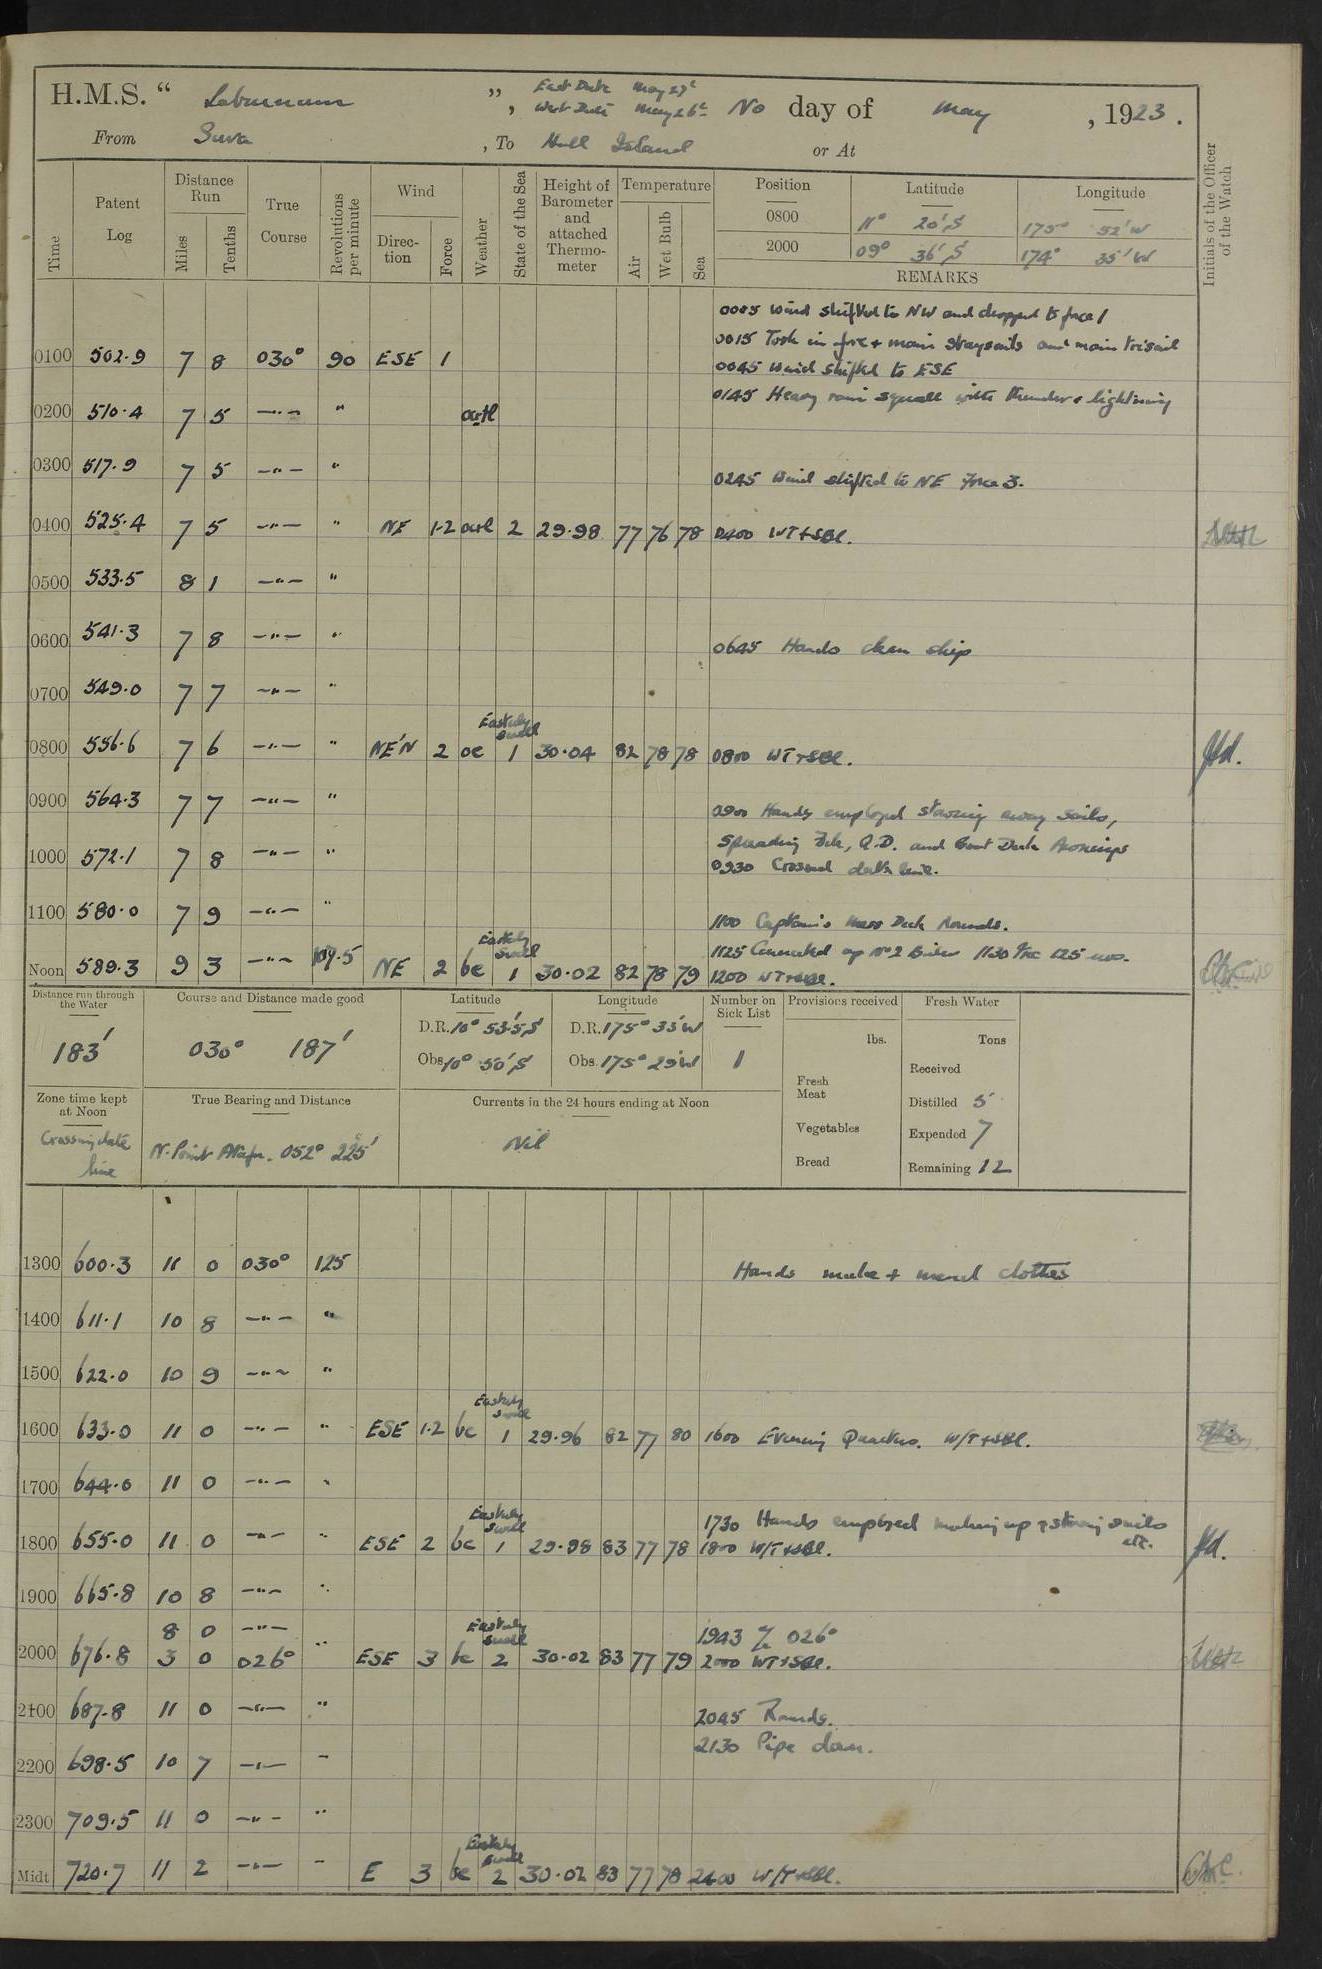 H.M.S. “ Laburnum ” , East Date May 27th
West Date May 26th No day of May , 1923 .
From Suva , To Hull Island or At
Time Patent Log Distance Run Miles Tenths True Course Revolutions per minute Wind Direction Force Weather State of the Sea Height of Barometer and attached Thermometer Temperature Air Wet Bulb Sea Position Latitude Longitude Initials of the Officer of the Watch
0800 11° 20' S 175° 52' W
2000 09° 36' S 174° 35' W
REMARKS
0005 Wind shifted to NW and dropped to force 1
0015 Took in fore + main staysails and main trisail
0100 502.9 7 8 030° 90 ESE 1 0045 Wind shifted to ESE
0145 Heavy rain squall with thunder & lightning
0200 510.4 7 5 —"— "
0300 517.9 7 5 —"— " 0245 Wind shifted to NE Force 3.
0400 525.4 7 5 —"— " NE 1-2 2 29.98 77 76 78 0400 WT+SBl.
0500 533.5 8 1 —"— "
0600 541.3 7 8 —"— " 0645 Hands clean ship
0700 549.0 7 7 —"— "
Easterly swell
0800 556.6 7 6 —"— " NE'N 2 oc 1 30.04 82 78 78 0800 WT+SBl.
0900 564.3 7 7 —"— " 0900 Hands employed stowing away sails,
Spreading Q.D. and Boat Deck Awnings
1000 572.1 7 8 —"— " 0930 Crossed date line.
1100 580.0 7 9 —"— " 1100 Captain's Mess Deck Rounds.
Easterly swell 1125 Connected up No 2 Boiler 1130 Inc 125 revs.
Noon 589.3 9 3 —"— 109.5 NE 2 bc 1 30.02 82 78 79 1200 WT+SBl.
Distance run through the Water Course and Distance made good Latitude Longitude Number on Sick List Provisions received Fresh Water
D.R. 10° 53'.5 S D.R. 175° 33' W lbs. Tons
183' 030° 187' Obs. 10° 50' S Obs. 175° 29' W 1 Received
Fresh Meat
Zone time kept at Noon True Bearing and Distance Currents in the 24 hours ending at Noon Distilled 5
Crossing date line N. Point Atafu. 052° 225' Nil Vegetables Expended 7
Bread Remaining 12
1300 600.3 11 0 030° 125 Hands make + mend clothes
1400 611.1 10 8 —"— "
1500 622.0 10 9 —"— "
Easterly swell
1600 633.0 11 0 —"— " ESE 1-2 bc 1 29.96 82 77 80 1600 Evening Quarters. W/T+SBl.
1700 644.0 11 0 —"— "
Easterly swell 1730 Hands employed making up + stowing sails etc.
1800 655.0 11 0 —"— " ESE 2 bc 1 29.98 83 77 78 1800 W/T+SBl.
1900 665.8 10 8 —"— "
8 0 —"— Easterly swell 1943 026°
2000 676.8 3 0 026° " ESE 3 bc 2 30.02 83 77 79 2000 WT+SBl.
2100 687.8 11 0 —"— " 2045 Rounds.
2130 Pipe down.
2200 698.5 10 7 —"— "
2300 709.5 11 0 —"— "
Easterly swell
Midt 720.7 11 2 —"— " E 3 bc 2 30.02 83 77 78 2400 W/T+SBl.